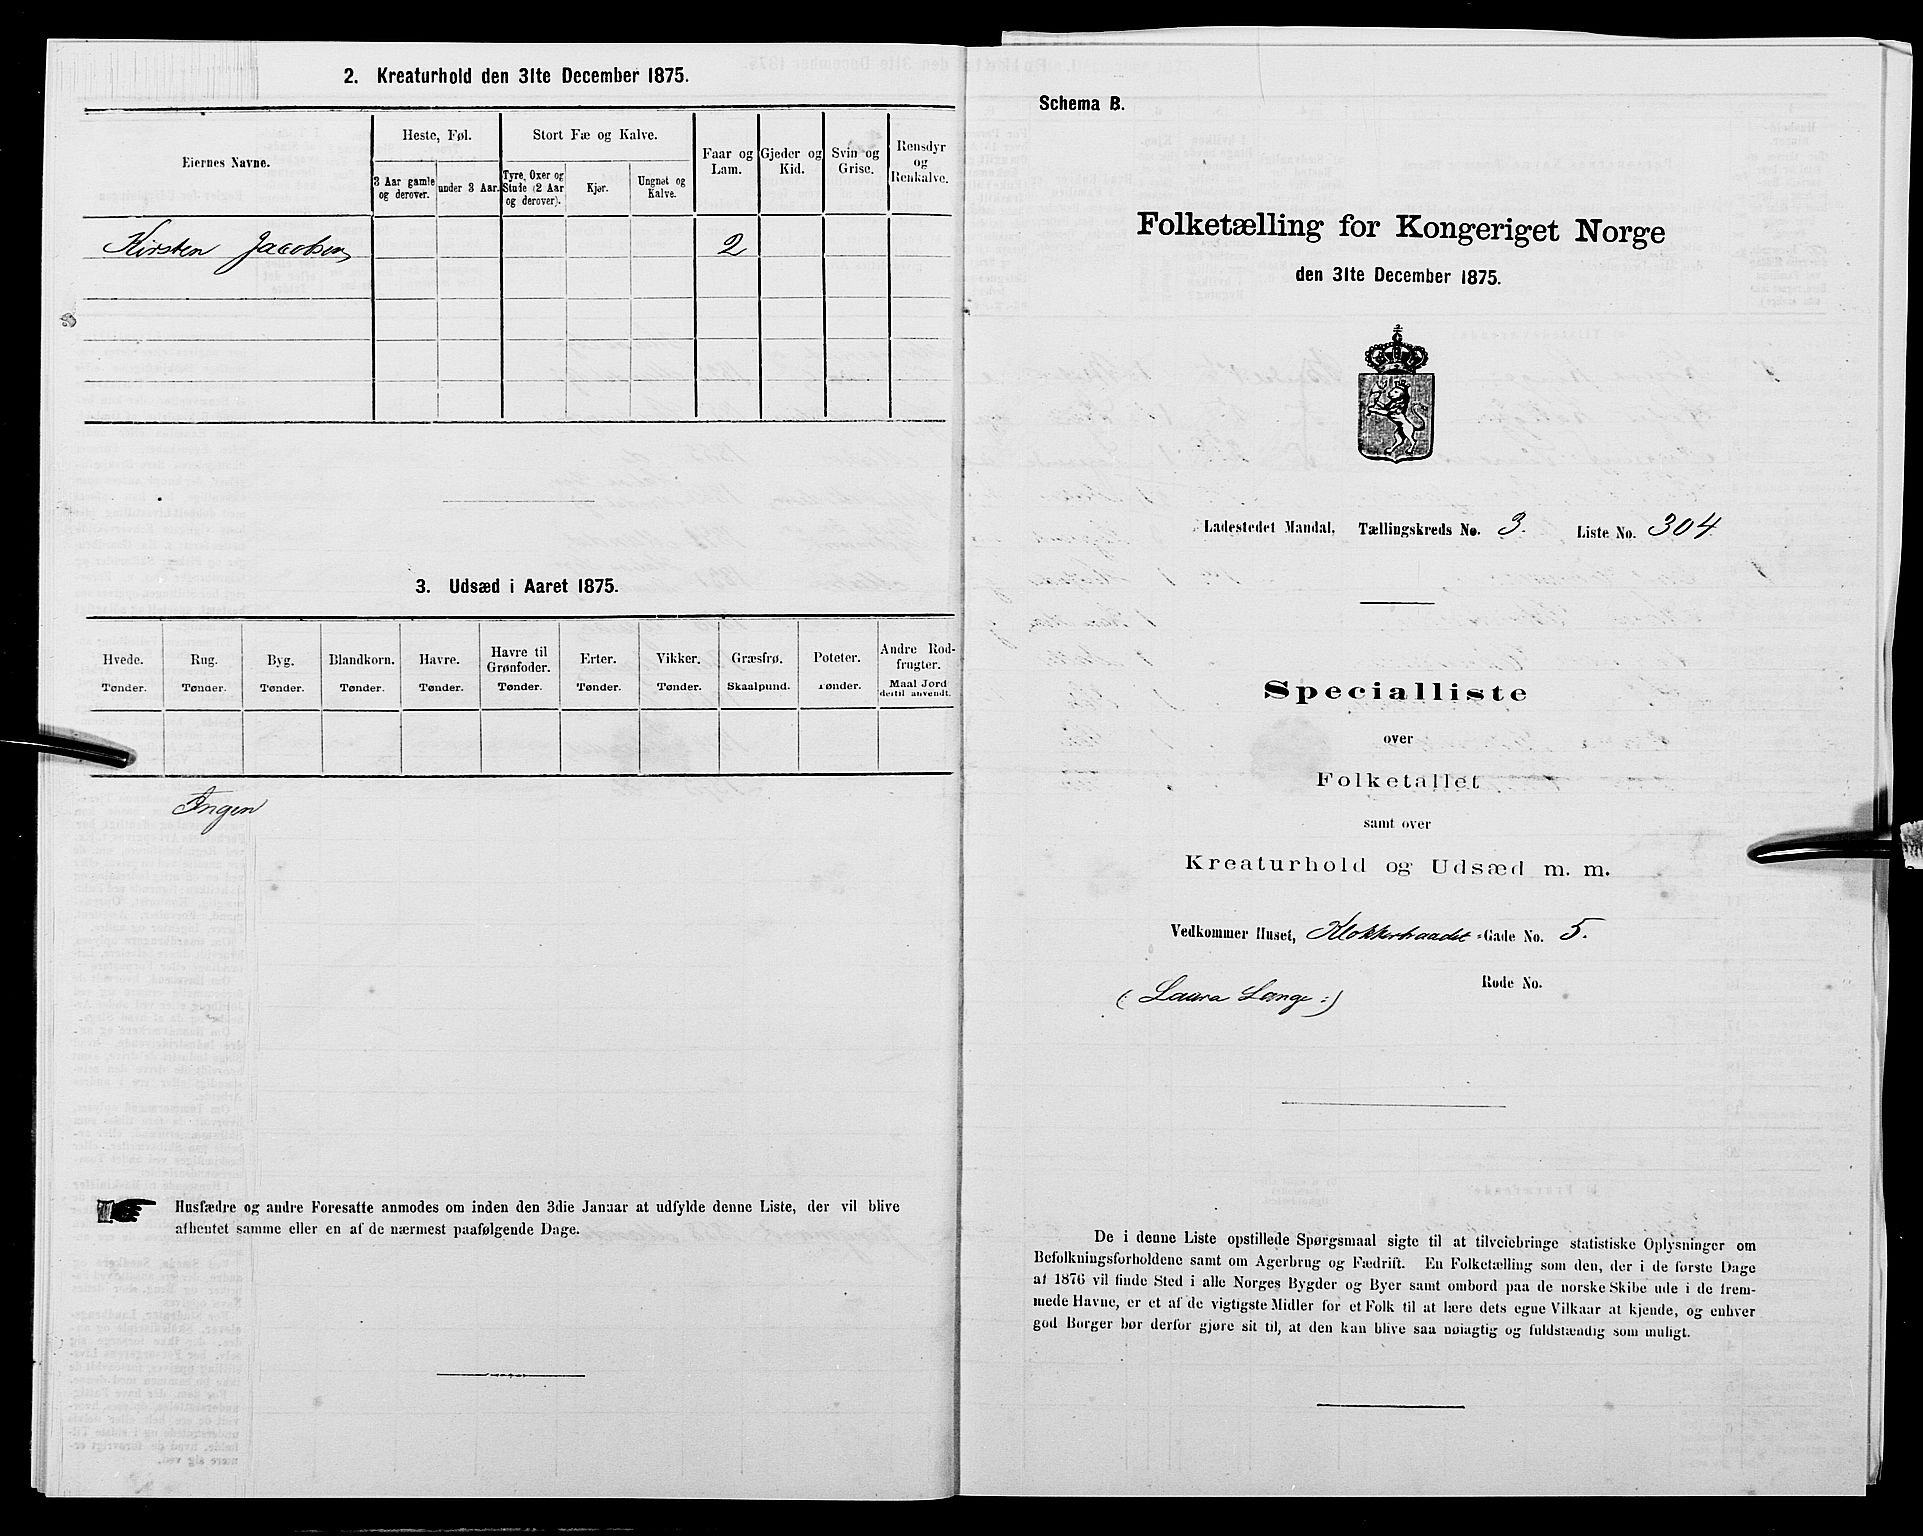 2. Kreaturhold den 31te December 1875.
Eiernes Navne.
Heste, Føl.
3 Aar gamle og derover.
under 3 Aar.
Stort Fæ og Kalve.
Tyre, Oxer og Stude (2 Aar og derover).
Kjør.
Ungnøt og Kalve.
Faar og Lam.
Gjeder og Kid.
Svin og Grise.
Rensdyr og Renkalve.
Kirsten Jacobsen 2
3. Udsæd i Aaret 1875.
Hvede. Rug. Byg. Blandkorn. Havre. Havre til Grønfoder. Erter. Vikker. Græsfrø. Poteter. Andre Rodfrugter.
Tønder. Tønder. Tønder. Tønder. Tønder. Tønder. Tønder. Tønder. Skaalpund. Tønder. Maal Jord dertil anvendt.
Ingen
Husfædre og andre Foresatte anmodes om inden den 3die Januar at udfylde denne Liste, der vil blive
afhentet samme eller en af de nærmest paafølgende Dage.
Schema B.
Folketælling for Kongeriget Norge
den 31te December 1875.
Ladestedet Mandal, Tællingskreds No. 3. Liste No. 304
Specialliste
over
Folketallet
samt over
Kreaturhold og Udsæd m. m.
Vedkommer Huset, Klokkerbaadet-Gade No. 5.
Rode No.
(Laura Lange:)
De i denne Liste opstillede Spørgsmaal sigte til at tilveiebringe statistiske Oplysninger om
Befolkningsforholdene samt om Agerbrug og Fædrift. En Folketælling som den, der i de første Dage
af 1876 vil finde Sted i alle Norges Bygder og Byer samt ombord paa de norske Skibe ude i de frem-
mede Havne, er et af de vigtigste Midler for et Folk til at lære dets egne Vilkaar at kjende, og enhver
god Borger bør derfor gjøre sit til, at den kan blive saa nøiagtig og fuldstændig som muligt.